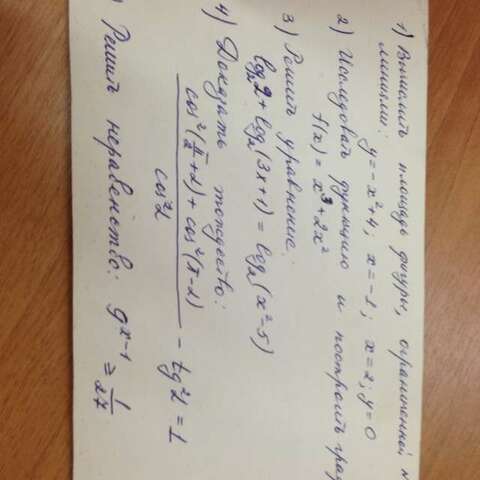 1) Вычислить площадь фигуры, ограниченной
линиями: y=-x²+4; x=-1; x=2; y=0
2) Исследовать функцию и построить граф
f(x) = x³+2x²
3) Решить уравнение:
log₂2 + log₂(3x+1) = log₂(x²-5)
4) Доказать тождество:
cos²(π/2+α) + cos²(π-α) / cos²α - tg²α = 1
) Решить неравенство: 9^(x-1) ≥ 1/27